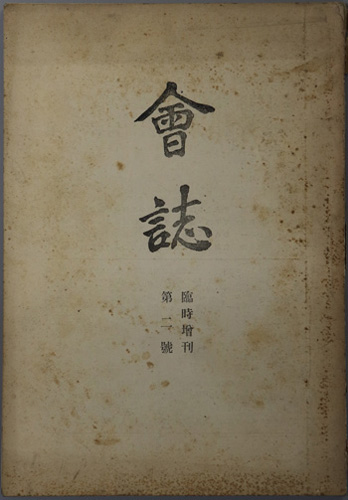 會誌
臨時增刊
第二號